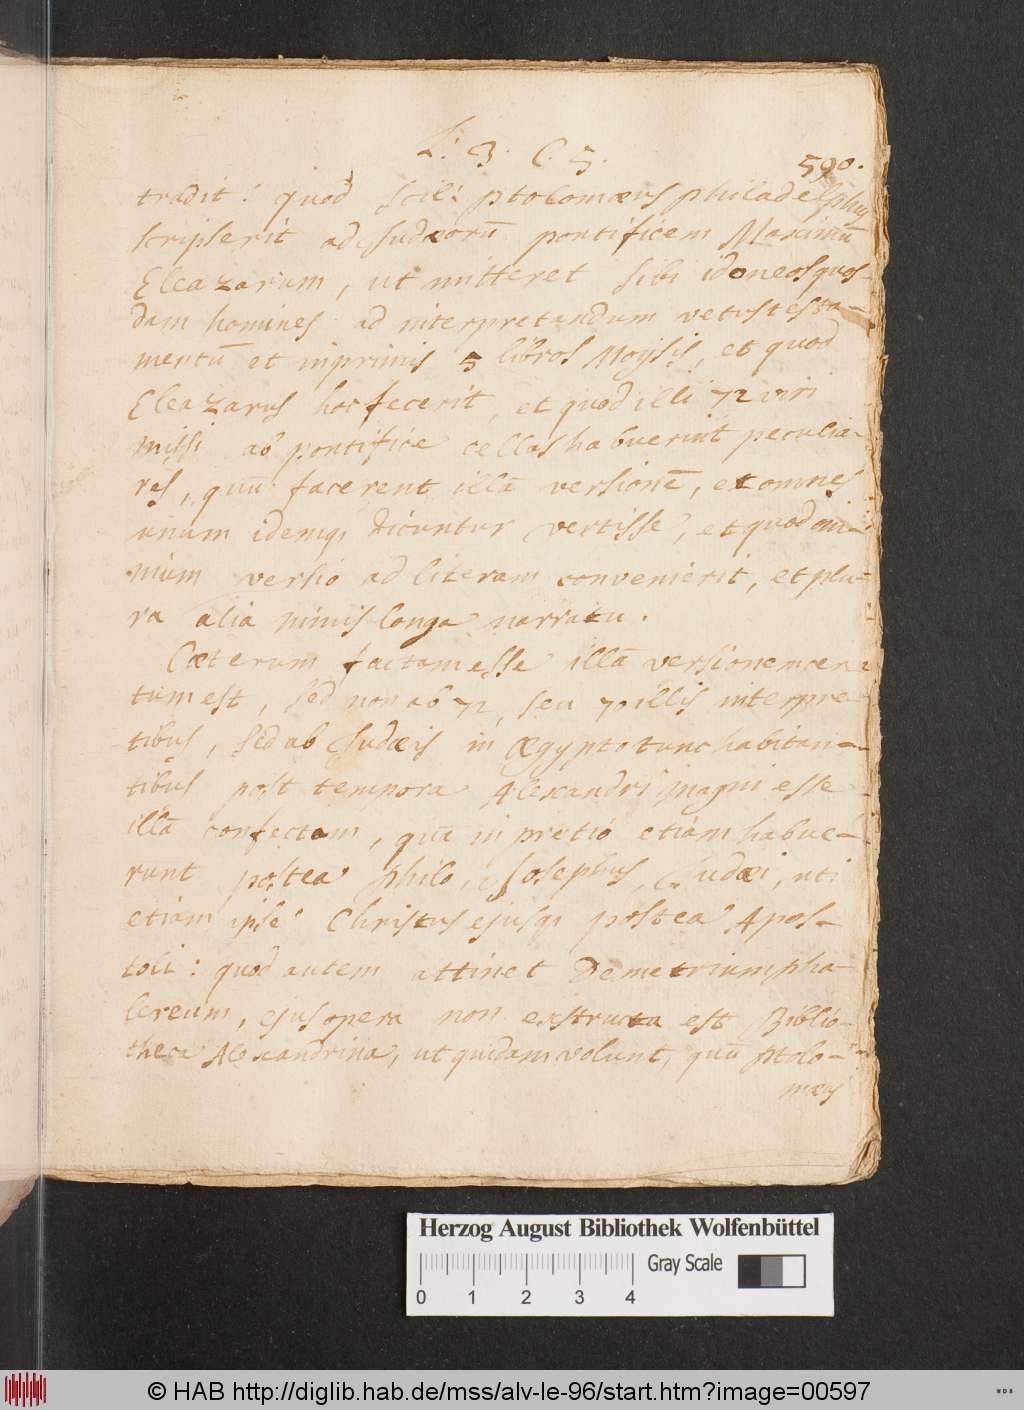 L: 3. C. 5.
590.
tradit: quod scil: ptolomæus philadelphus
scripserit ad Judæorū pontificem Maximū
Eleazarum, ut mitteret sibi idoneos quos-
dam homines ad interpretandum vetus testa-
mentū et inprimis 5 libros Moysis, et quod
Eleazarus hoc fecerit, et quod illi 72 viri
missi ab pontifice cellas habuerint peculia-
res, quū facerent illā versionē, et omnes
unum idemq; dicuntur vertisse, et quod ni-
mium versio ad literam convenierit, et plu-
ra alia nimis longa narratu.
Cæterum factam esse illā versionem cer-
tum est, sed non ab 72, seu 70 illis interpre-
tibus, sed ab Judæis in Ægypto tunc habitan-
tibus post tempora Alexandri magni esse
illā confectam, quā in pretio etiam habue-
runt postea Philo, Josephus, Judæi, uti
etiam ipse Christus ejusq; postea Apos-
toli: quod autem attinet Demetrium pha-
lereum, ejus opera non exstructa est Biblio-
theca Alexandrina, ut quidam volunt, quū Ptolo-
mæus
Herzog August Bibliothek Wolfenbüttel
Gray Scale
0 1 2 3 4
© HAB http://diglib.hab.de/mss/alv-le-96/start.htm?image=00597
WDB